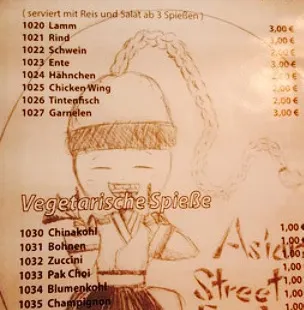 ( serviert mit Reis und Salat ab 3 Spießen )
1020 Lamm 3,00 €
1021 Rind 3,00 €
1022 Schwein 2,00 €
1023 Ente 3,00 €
1024 Hähnchen 2,00 €
1025 Chicken Wing 2,00 €
1026 Tintenfisch 2,00 €
1027 Garnelen 3,00 €
Vegetarische Spieße
1030 Chinakohl 1,00 €
1031 Bohnen 1,00 €
1032 Zuccini 1,00 €
1033 Pak Choi 1,00 €
1034 Blumenkohl 1,00 €
1035 Champignon 1,00 €
Asian
Street